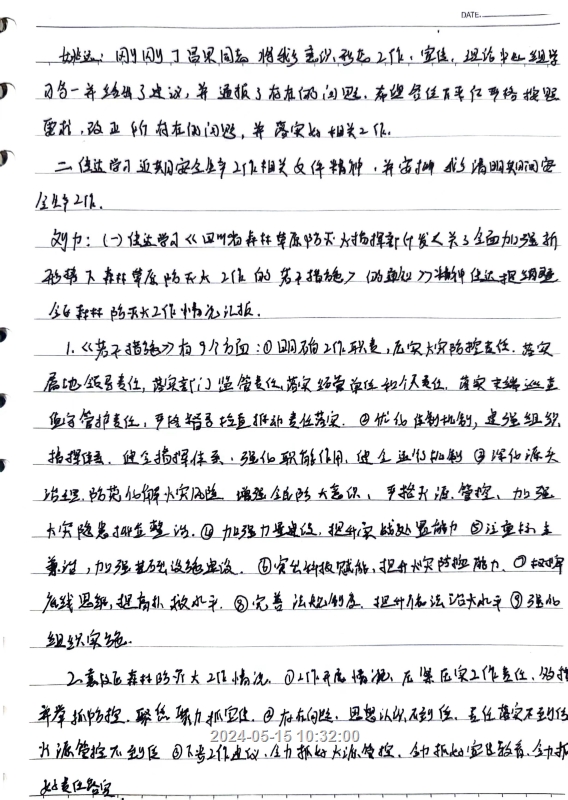 DATE.
刚刚丁昌果同志将我乡意识形态工作、宣传、理论中心组学
习各一并给出了建议,并通报了存在的问题,希望各位严格按照
要求,改正所存在的问题,并落实好相关工作。
二、传达学习近期安全生产工作相关文件精神,并安排我乡清明期间安
全生产工作。
刘力:(一)传达学习《四川省森林草原防灭火指挥部印发<关于全面加强新
形势下森林草原防灭火工作的若干措施>的通知》精神
森林防灭火工作情况汇报。
1.《若干措施》有9个方面:①明确工作职责,压实火灾防控责任。落实
属地领导责任,落实部门监管责任,落实经营单位和个人责任,落实巡查
看守管护责任,严格督导检查推动责任落实。②优化体制机制,建强组织
指挥体系。健全指挥体系,强化职能作用,健全运行机制③深化源头
治理,防范化解火灾风险。增强全民防火意识,严格火源管控,加强
火灾隐患排查整治。④加强力量建设,提升实战处置能力⑤注重标本
兼治,加强基础设施建设。⑥突出科技赋能,提升火灾防控能力。⑦树牢
底线思维,提高扑救水平。⑧完善法规制度,提升依法治火水平⑨强化
组织实施。
2.森林防灭火工作情况。①工作开展情况,压紧压实工作责任,
并举抓防控,联防联力抓宣传。②存在问题,思想认识不到位,责任落实不到位
火源管控不到位③下步工作建议,全力抓好火源管控,全力抓好宣传教育,全力抓
好责任落实
2024-05-15 10:32:00